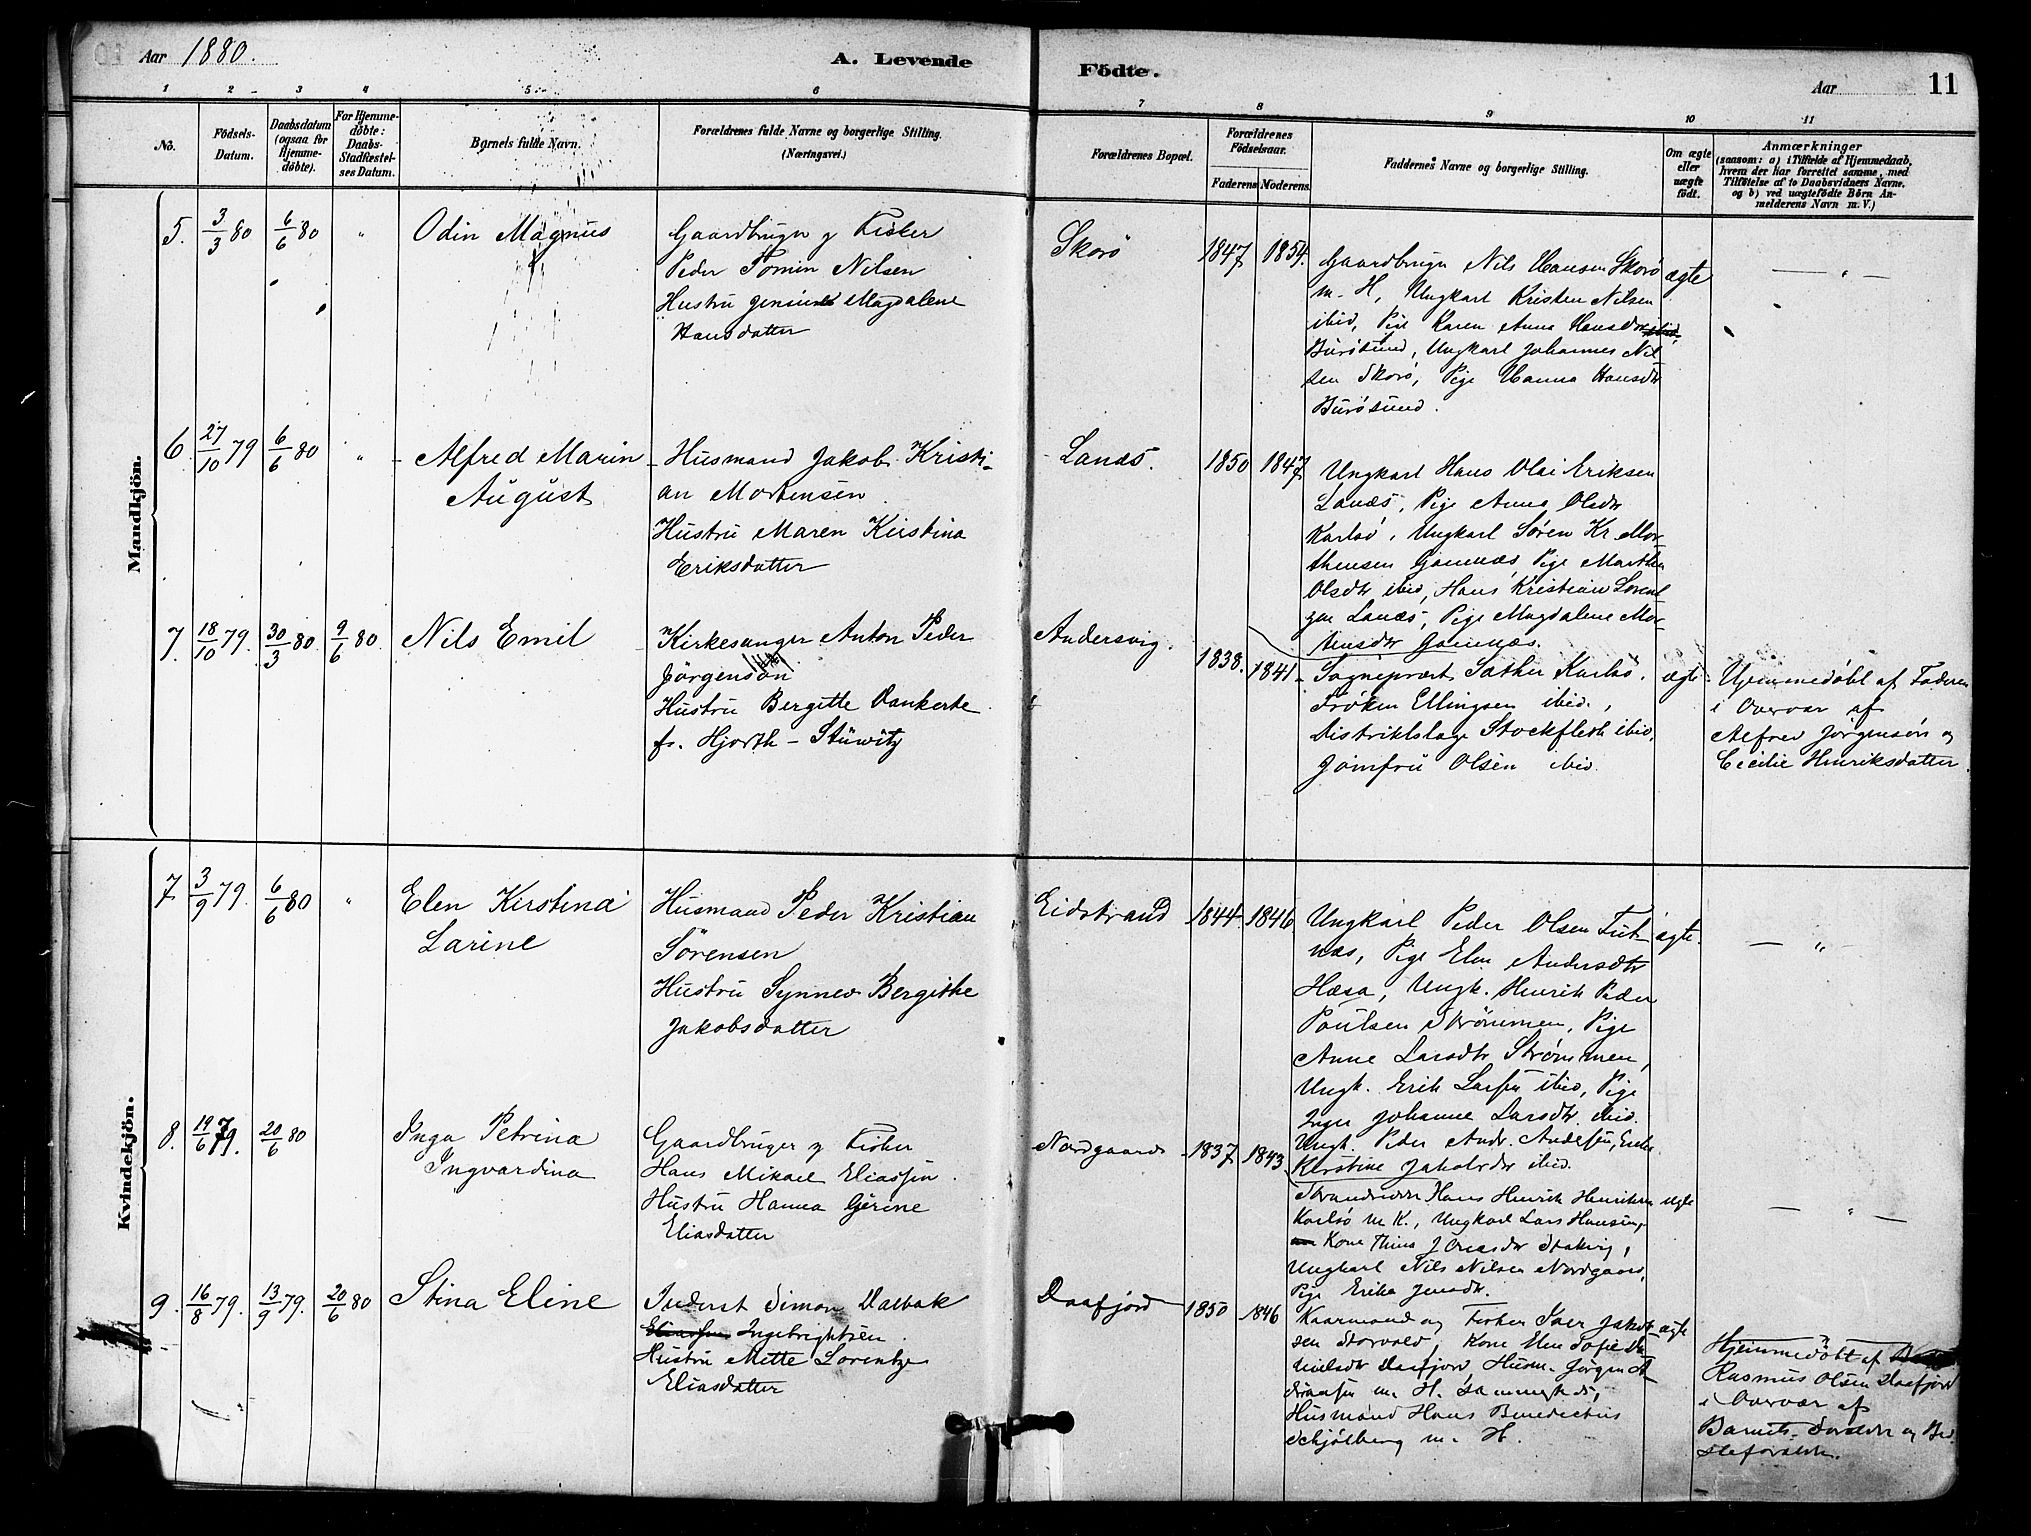 Aar 1880.
A. Levende
Födte.
Aar
11
1 2 3 4 5 6 7 8 9 10 11
No.
Födsels-
Datum.
Daabsdatum
(ogsaa for
Hjemme-
døbte).
For Hjemme-
døbte:
Daabs-
Stadfæstel-
ses Datum.
Barnets fulde Navn.
Forældrenes fulde Navne og borgerlige Stilling.
(Næringsvei.)
Forældrenes Bopæl.
Forældrenes
Fødselsaar.
Faderens
Moderens.
Faddernes Navne og borgerlige Stilling.
Om ægte
eller
uægte
født.
Anmærkninger
(saasom: a) i Tilfælde af Hjemmedaab,
hvem der har forrettet samme, med
Tilføielse af to Daabsvidners Navne,
og b) ved uægtefødte Børn An-
melderens Navn m. V.)
Mandkjön.
5. 3/3 80 6/6 80 "
Odin Magnus
Gaardbruger g Fisker
Peder Tomin Nilsen
Hustru Magdalene
Hansdatter
Skorö
1847 1854.
Gaardbruger Nils Hansen Skorö
m. H, Ungkarl Kristen Nilsen
ibid, Pige Karen Anna Hansdtr
Burösund, Ungkarl Johannes Nil
sen Skorö, Pige Hanna Hansdtr
Burösund.
ægte
— " —
6. 27/10 79 6/6 80 "
Alfred Marin
August
Husmand Jakob Kristi-
an Mortensen
Hustru Maren Kirstina
Eriksdatter
Lanæs.
1850 1847
Ungkarl Hans Olai Eriksen
Lanæs, Pige Anna Olsdtr
Karlsö, Ungkarl Søren Kr. Mor-
thensen Gamnæs, Pige Marthe
Olsdtr ibid, Hans Kristian Lorent
zen Lanæs, Pige Magdalene Mor-
tensdtr Gamnæs.
7. 18/10 79. 30/3 80 9/6 80.
Nils Emil
Kirkesanger Anton Peder
Jörgensön
Hustru Bergitte Dankerte
f. Hjorth - Stüwitz
Andersvig.
1838. 1841
Sognepræst Sæther Karlsö.
Frøken Ellingsen ibid.,
Distriktslæge Stockfleth ibid,
Jomfru Olsen ibid.
ægte
Hjemmedöbt af Faderen
i Overvær af
Alfred Jörgensön og
Cecilie Henriksdatter
Kvindekjön.
7. 3/9 79. 6/6 80 "
Elen Kirstina
Larine
Husmand Peder Kristian
Sörensen
Hustru Synnev Bergithe
Jakobsdatter
Eidstrand
1844. 1846
Ungkarl Peder Olsen
næs, Pige Elen Andersdtr
Hæsa, Ungk. Henrik Peder
Poulsen Strömmen, Pige
Anne Larsdtr Strömmen,
Ungk. Erik Larsen ibid, Pige
Inger Johanne Larsdtr ibid.
Ungk. Peder Andr.
Kirstine Jakobsdtr ibid.
ægte.
— "
8. 19/6 79. 20/6 80
Inga Petrina
Ingvardina
Gaardbruger g Fisker
Hans Mikael Eliassen.
Hustru Hanna Gjerine
Eliasdatter
Nordgaard
1837 1843
Hans Henrik Henriksen
Karlsö m K., Ungkarl Lars Hansen,
Kone Thina
Ungkarl Nils Nilsen Nordgaard,
Pige Erika Jensdtr.
ægte
— " —
9. 16/8 79. 13/9 79. 20/6 80
Stina Eline
Inderst Simon Dalbak
Eliassen Ingebrigtsen.
Hustru Mette Lorentze
Eliasdatter
Daafjord
1850 1846
Kaarmand og Fisker Iver Jakob
sen Storvold, Kone Elen Sofie Da
nielsdtr Daafjord, Husm. Jörgen
m. H. sammesteds,
Husmand Hans Benedictus
Schjölberg m. H.
ægte
Hjemmedöbt af
Rasmus Olsen Daafjord
i Overvær af
Barnets Forældre og Bed
steforældre.